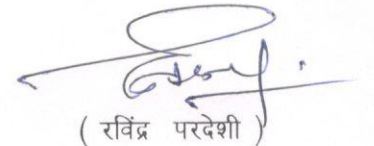 ( रविंद्र परदेशी )